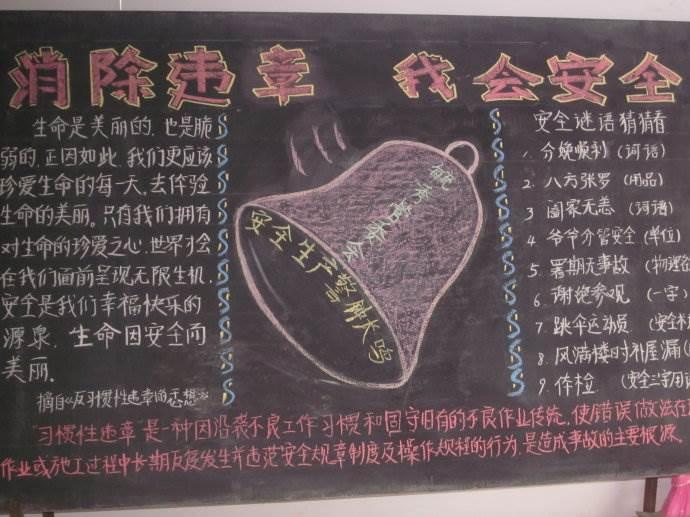 消除违章 我会安全
生命是美丽的,也是脆
弱的,正因如此,我们更应该
珍爱生命的每一天,去体验
生命的美丽。只有我们拥有
对生命的珍爱之心,世界才会
在我们面前呈现无限生机,
安全是我们幸福快乐的
源泉,生命因安全而
美丽.
摘自《反习惯性违章的思想》
安全生产警钟大鸣
安全谜语猜猜看
1. 分娩顺利 (词语)
2. 八方张罗 (用品)
3 阖家无恙 (词语)
4 爷爷亦管安全 (单位)
5. 暑期无事故 (物理
6. 谢绝参观 (一字)
7. 跳伞运动员. (安全
8. 风满楼时补屋漏
9. 体检 (安全三字用语
"习惯性违章"是一种因沿袭不良工作习惯和固守旧有的不良作业传统,使错误做法在
作业或施工过程中长期反复发生并违范安全规章制度及操作规程的行为,是造成事故的主要根源.